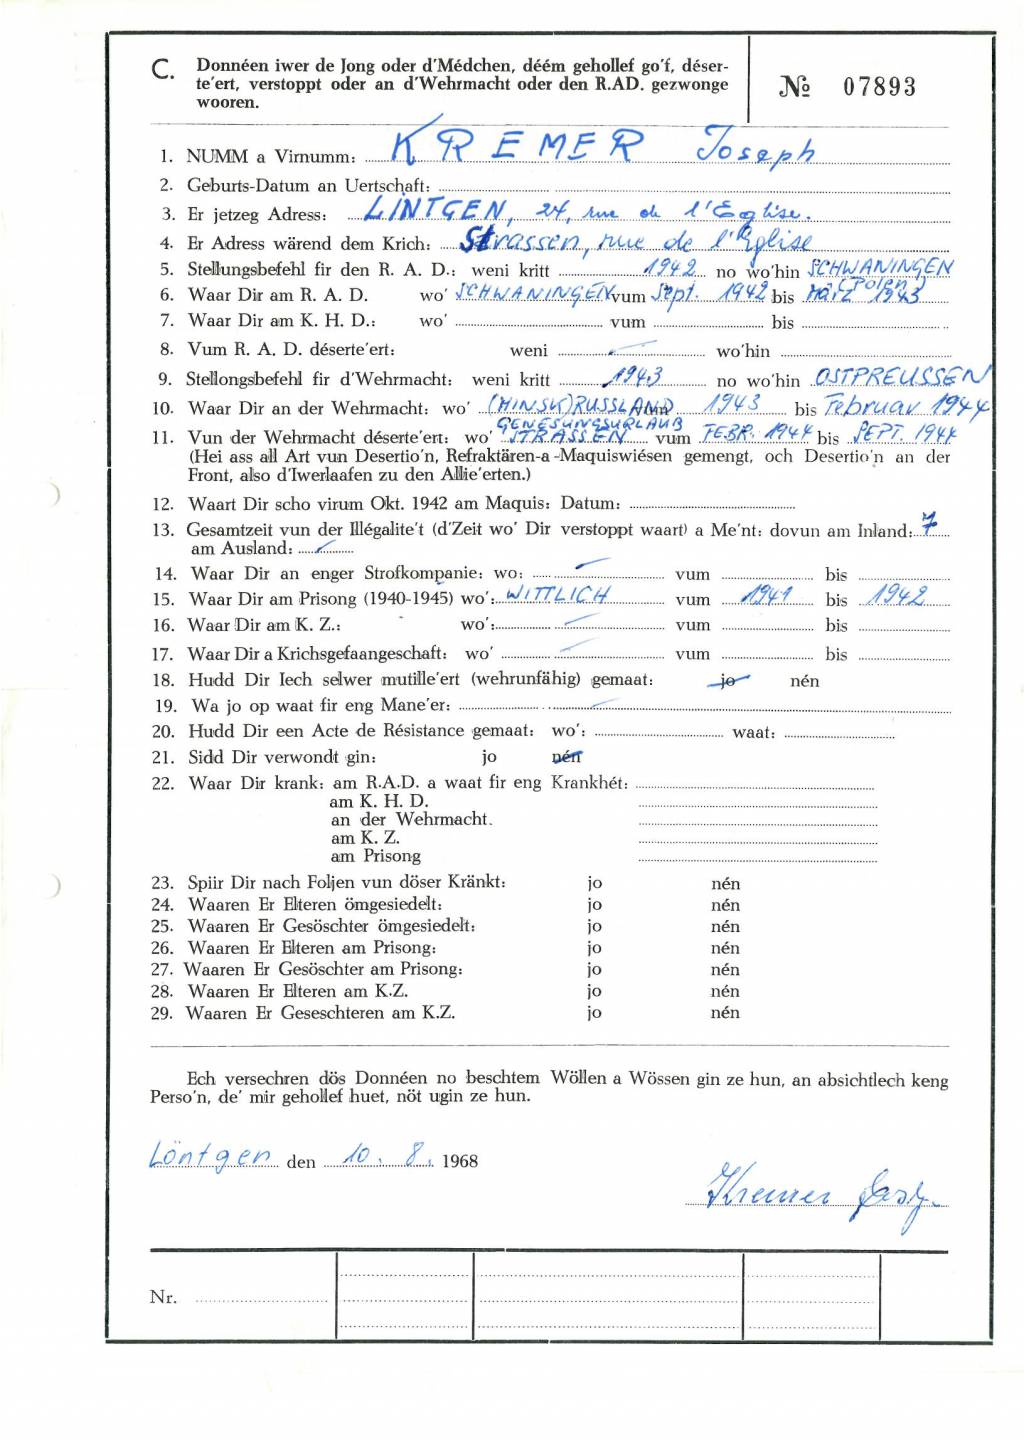 C. Donnéen iwer de Jong oder d'Médchen, déém gehollef go'f, déser-
te'ert, verstoppt oder an d'Wehrmacht oder den R.AD. gezwonge
wooren.
№ 07893
1. NUMM a Virnumm: KREMER Joseph
2. Geburts-Datum an Uertschaft:
3. Er jetzeg Adress: LINTGEN, 24, rue de l'Eglise.
4. Er Adress wärend dem Krich: Strassen, rue de l'Eglise
5. Stellungsbefehl fir den R. A. D.: weni kritt 1942 no wo'hin SCHWANINGEN
(Polen)
6. Waar Dir am R. A. D. wo' SCHWANINGEN vum Sept. 1942 bis März 1943
7. Waar Dir am K. H. D.: wo' vum bis
8. Vum R. A. D. déserte'ert: weni wo'hin
9. Stellongsbefehl fir d'Wehrmacht: weni kritt 1943 no wo'hin OSTPREUSSEN
10. Waar Dir an der Wehrmacht: wo' (MINSK) RUSSLAND 1943 bis Februar 1944
GENESUNGSURLAUB
11. Vun der Wehrmacht déserte'ert: wo' STRASSEN vum FEBR. 1944 bis SEPT. 1944
(Hei ass all Art vun Desertio'n, Refraktären-a-Maquiswiésen gemengt, och Desertio'n an der
Front, also d'Iwerlaafen zu den Allie'erten.)
12. Waart Dir scho virum Okt. 1942 am Maquis: Datum:
13. Gesamtzeit vun der Illégalite't (d'Zeit wo' Dir verstoppt waart) a Me'nt: dovun am Inland: 7
am Ausland:
14. Waar Dir an enger Strofkompanie: wo: vum bis
15. Waar Dir am Prisong (1940-1945) wo': WITTLICH vum 1941 bis 1942
16. Waar Dir am K. Z.: wo': vum bis
17. Waar Dir a Krichsgefaangeschaft: wo' vum bis
18. Hudd Dir Iech selwer mutille'ert (wehrunfähig) gemaat: jo nén
19. Wa jo op waat fir eng Mane'er:
20. Hudd Dir een Acte de Résistance gemaat: wo': waat:
21. Sidd Dir verwondt gin: jo nén
22. Waar Dir krank: am R.A.D. a waat fir eng Krankhét:
am K. H. D.
an der Wehrmacht.
am K. Z.
am Prisong
23. Spiir Dir nach Foljen vun döser Kränkt: jo nén
24. Waaren Er Elteren ömgesiedelt: jo nén
25. Waaren Er Gesöschter ömgesiedelt: jo nén
26. Waaren Er Elteren am Prisong: jo nén
27. Waaren Er Gesöschter am Prisong: jo nén
28. Waaren Er Elteren am K.Z. jo nén
29. Waaren Er Geseschteren am K.Z. jo nén
Ech versechren dös Donnéen no beschtem Wöllen a Wössen gin ze hun, an absichtlech keng
Perso'n, de' mir gehollef huet, nöt ugin ze hun.
Löntgen den 10. 8. 1968
Kremer
Nr.